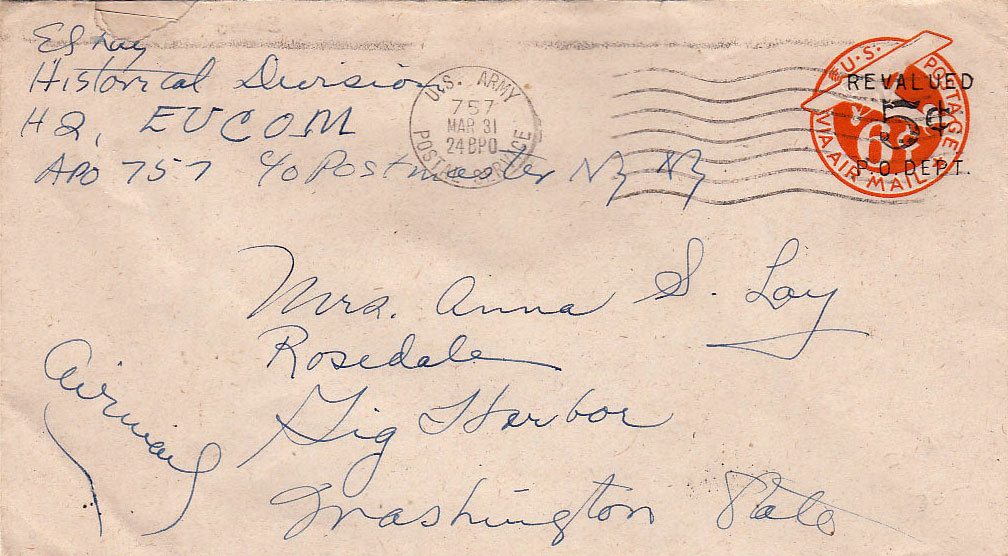 Historical Division
HQ, EUCOM
APO 757 c/o Postmaster NY NY
U.S. ARMY
757
MAR 31
24BPO
POSTAL SERVICE
U.S. POSTAGE
REVALUED
5¢
6¢
P.O. DEPT.
VIA AIR MAIL
Mrs. Anna S. Loy
Rosedale
Gig Harbor
Washington State
Airmail